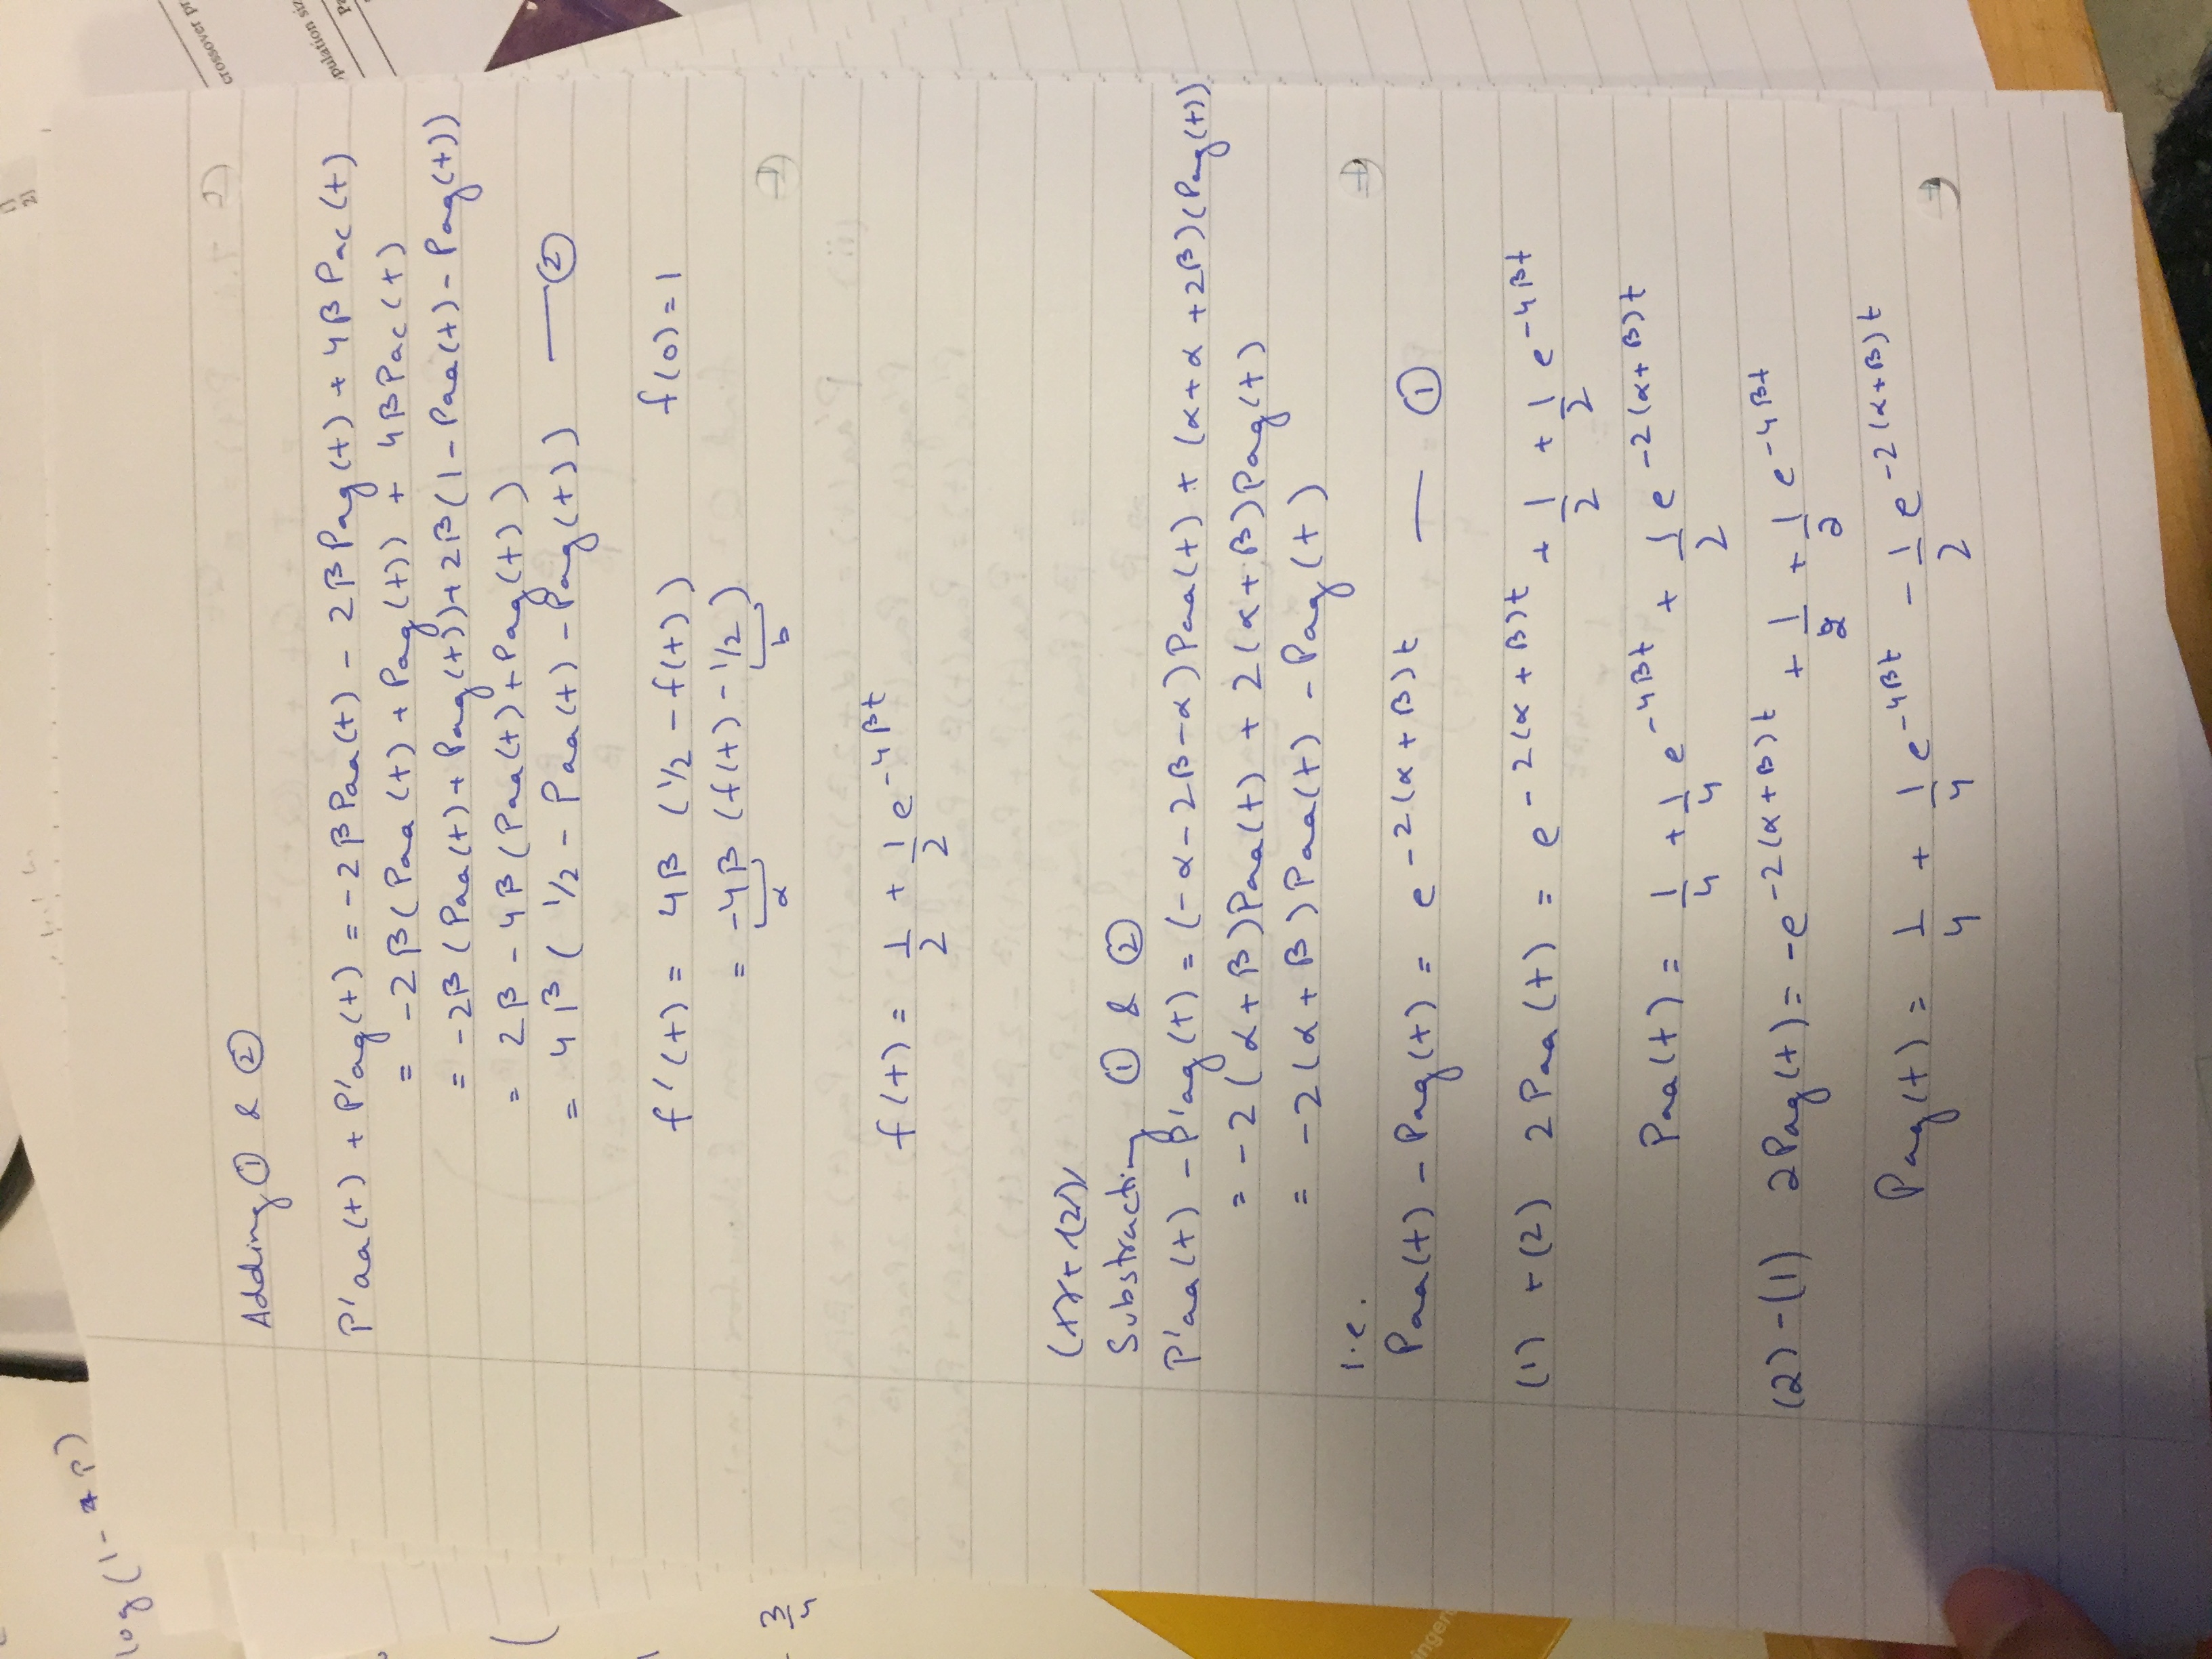 log(1-4p)
crossover pr
pulation siz
Pa
3/4
Adding ① & ②
P'aa(t) + P'ag(t) = -2βPaa(t) - 2βPag(t) + 4βPac(t)
= -2β(Paa(t) + Pag(t)) + 4βPac(t)
= -2β(Paa(t) + Pag(t)) + 2β(1 - Paa(t) - Pag(t))
= 2β - 4β(Paa(t) + Pag(t))
= 4β(1/2 - Paa(t) - Pag(t)) — ②
f'(t) = 4β (1/2 - f(t)) f(0) = 1
= -4β (f(t) - 1/2)
α b
f(t) = 1/2 + 1/2 e^-4βt
Substracting ① & ②
P'aa(t) - P'ag(t) = (-α-2β-α)Paa(t) + (α+α+2β)(Pag(t))
= -2(α+β)Paa(t) + 2(α+β)Pag(t)
= -2(α+β)Paa(t) - Pag(t)
i.e.
Paa(t) - Pag(t) = e^-2(α+β)t — ①
(1) + (2) 2Paa(t) = e^-2(α+β)t + 1/2 + 1/2 e^-4βt
Paa(t) = 1/4 + 1/4 e^-4βt + 1/2 e^-2(α+β)t
(2) - (1) 2Pag(t) = -e^-2(α+β)t + 1/2 + 1/2 e^-4βt
Pag(t) = 1/4 + 1/4 e^-4βt - 1/2 e^-2(α+β)t